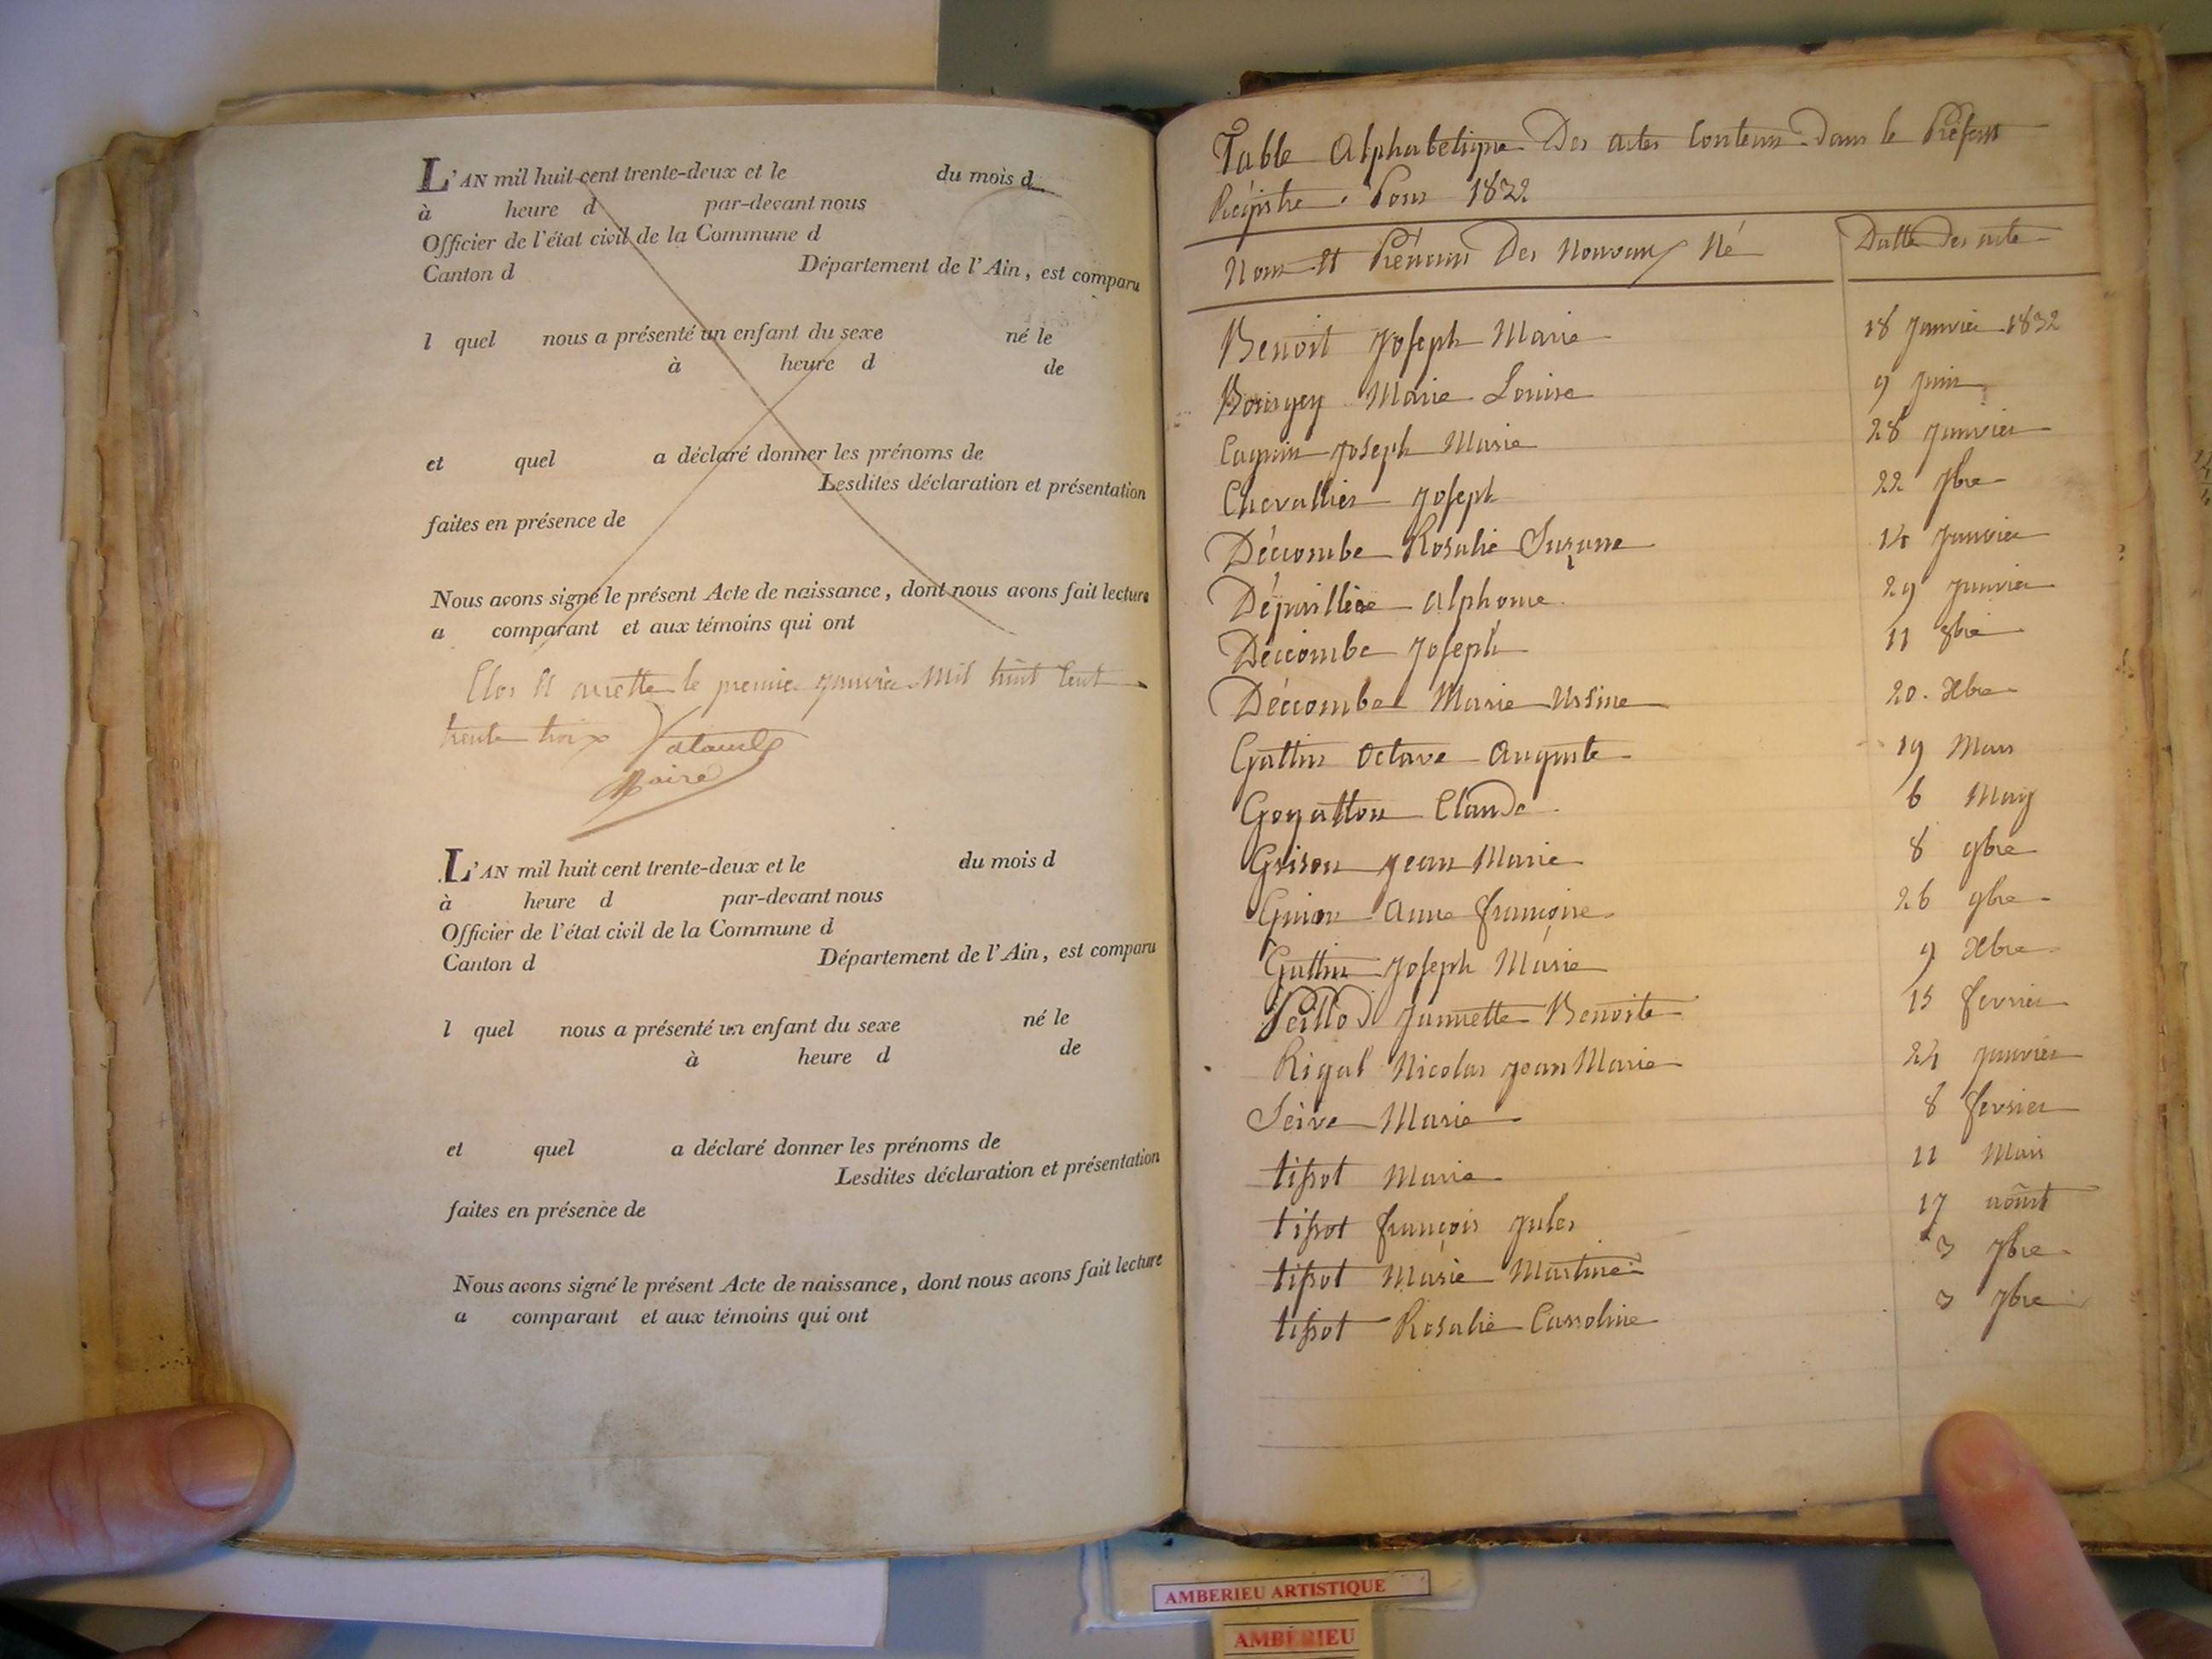 L'AN mil huit cent trente-deux et le du mois d
à heure d par-devant nous
Officier de l'état civil de la Commune d
Canton d Département de l'Ain, est comparu
l quel nous a présenté un enfant du sexe né le
à heure d de
et quel a déclaré donner les prénoms de
Lesdites déclaration et présentation
faites en présence de
Nous avons signé le présent Acte de naissance, dont nous avons fait lecture
a comparant et aux témoins qui ont
Clos et arretté le premier janvier mil huit Cent
trente trois
Maire
L'AN mil huit cent trente-deux et le du mois d
à heure d par-devant nous
Officier de l'état civil de la Commune d
Canton d Département de l'Ain, est comparu
l quel nous a présenté un enfant du sexe né le
à heure d de
et quel a déclaré donner les prénoms de
Lesdites déclaration et présentation
faites en présence de
Nous avons signé le présent Acte de naissance, dont nous avons fait lecture
a comparant et aux témoins qui ont
Table Alphabetique Des actes Contenu Dans le Présent
Régistre Pour 1832
Nom et Prénoms Des Nouveaux Né Datte Des acte
Benoit Joseph Marie 18 Janvier 1832
Bourgey Marie Louise 9 Juin
Cagnin Joseph Marie 28 Janvier
Chevallier Joseph 22 7bre
Déccombe Rosalie Suzanne 14 Janvier
Alphonse 29 Janvier
Déccombe Joseph 11 8bre
Déccombe Marie Ursine 20. Xbre
Guttin Octave Auguste 19 Mars
Goyatton Claude 6 May
Grison Jean Marie 8 9bre
Guion Anne françoise 26 9bre
Guttin Joseph Marie 9 Xbre
Peillod Jannette Benoite 15 fevrier
Rigal Nicolas Jean Marie 24 Janvier
Seive Marie 8 fevrier
tissot Marie 11 Mars
tissot françois Jules 17 aoust
tissot Marie Martine 3 7bre
tissot Rosalie Carroline 3 7bre
AMBERIEU ARTISTIQUE
AMBÉRIEU